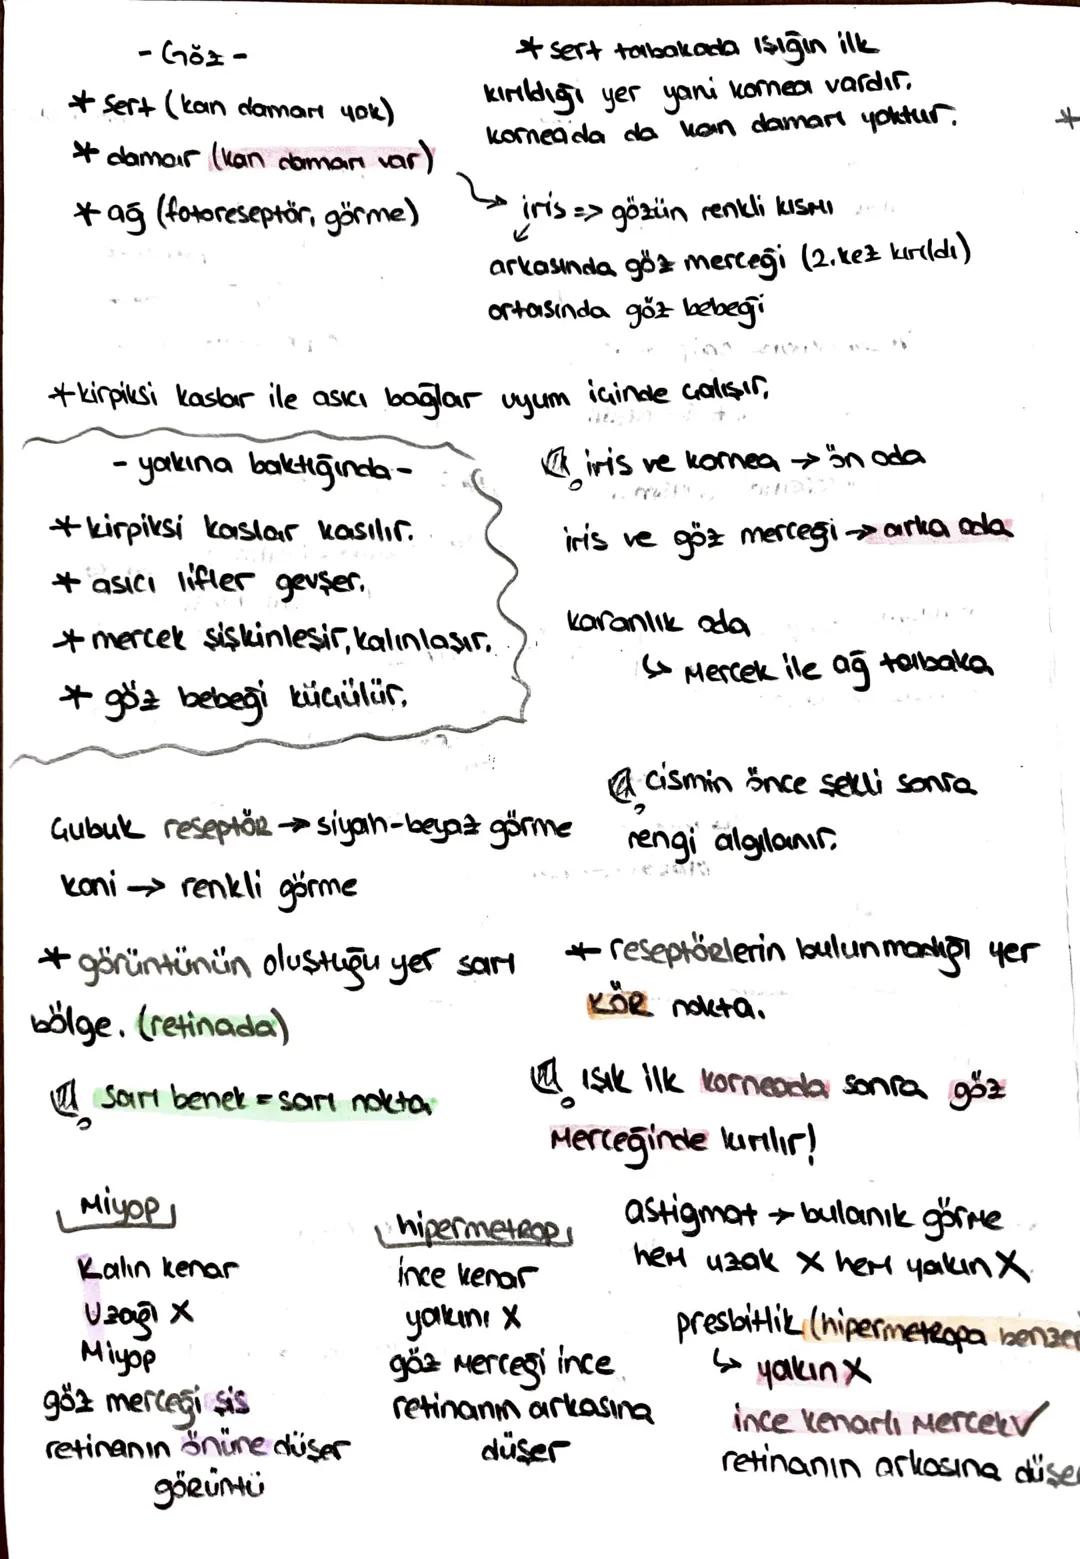 - Göz -
* sert (kan damarı yok)
* damar (kan damarı var)
* ağ (fotoreseptör, görme)
* sert tabakada ışığın ilk
kırıldığı yer yani kornea vardır.
korneada da kan damarı yoktur.
iris => gözün renkli kısmı
arkasında göz merceği (2.kez kırıldı)
ortasında göz bebeği
* kirpiksi kaslar ile asıcı bağlar uyum içinde çalışır.
- yakına baktığında -
* kirpiksi kaslar kasılır.
* asıcı lifler gevşer.
* mercek şişkinleşir, kalınlaşır.
* göz bebeği küçülür.
iris ve kornea → ön oda
iris ve göz merceği → arka oda
karanlık oda
↳ mercek ile ağ tabaka
cismin önce şekli sonra
rengi algılanır.
Çubuk reseptör → siyah-beyaz görme
koni → renkli görme
* görüntünün oluştuğu yer sarı
bölge. (retinada)
* reseptörlerin bulunmadığı yer
KÖR nokta.
sarı benek = sarı nokta
ışık ilk korneada sonra göz
merceğinde kırılır!
Miyop
Kalın kenar
Uzağı X
Miyop
göz merceği şiş
retinanın önüne düşer
görüntü
hipermetrop
ince kenar
yakını X
göz merceği ince
retinanın arkasına
düşer
astigmat → bulanık görme
hem uzak X hem yakın X
presbitlik (hipermetropa benzer
↳ yakın X
ince kenarlı mercek ✓
retinanın arkasına düşer